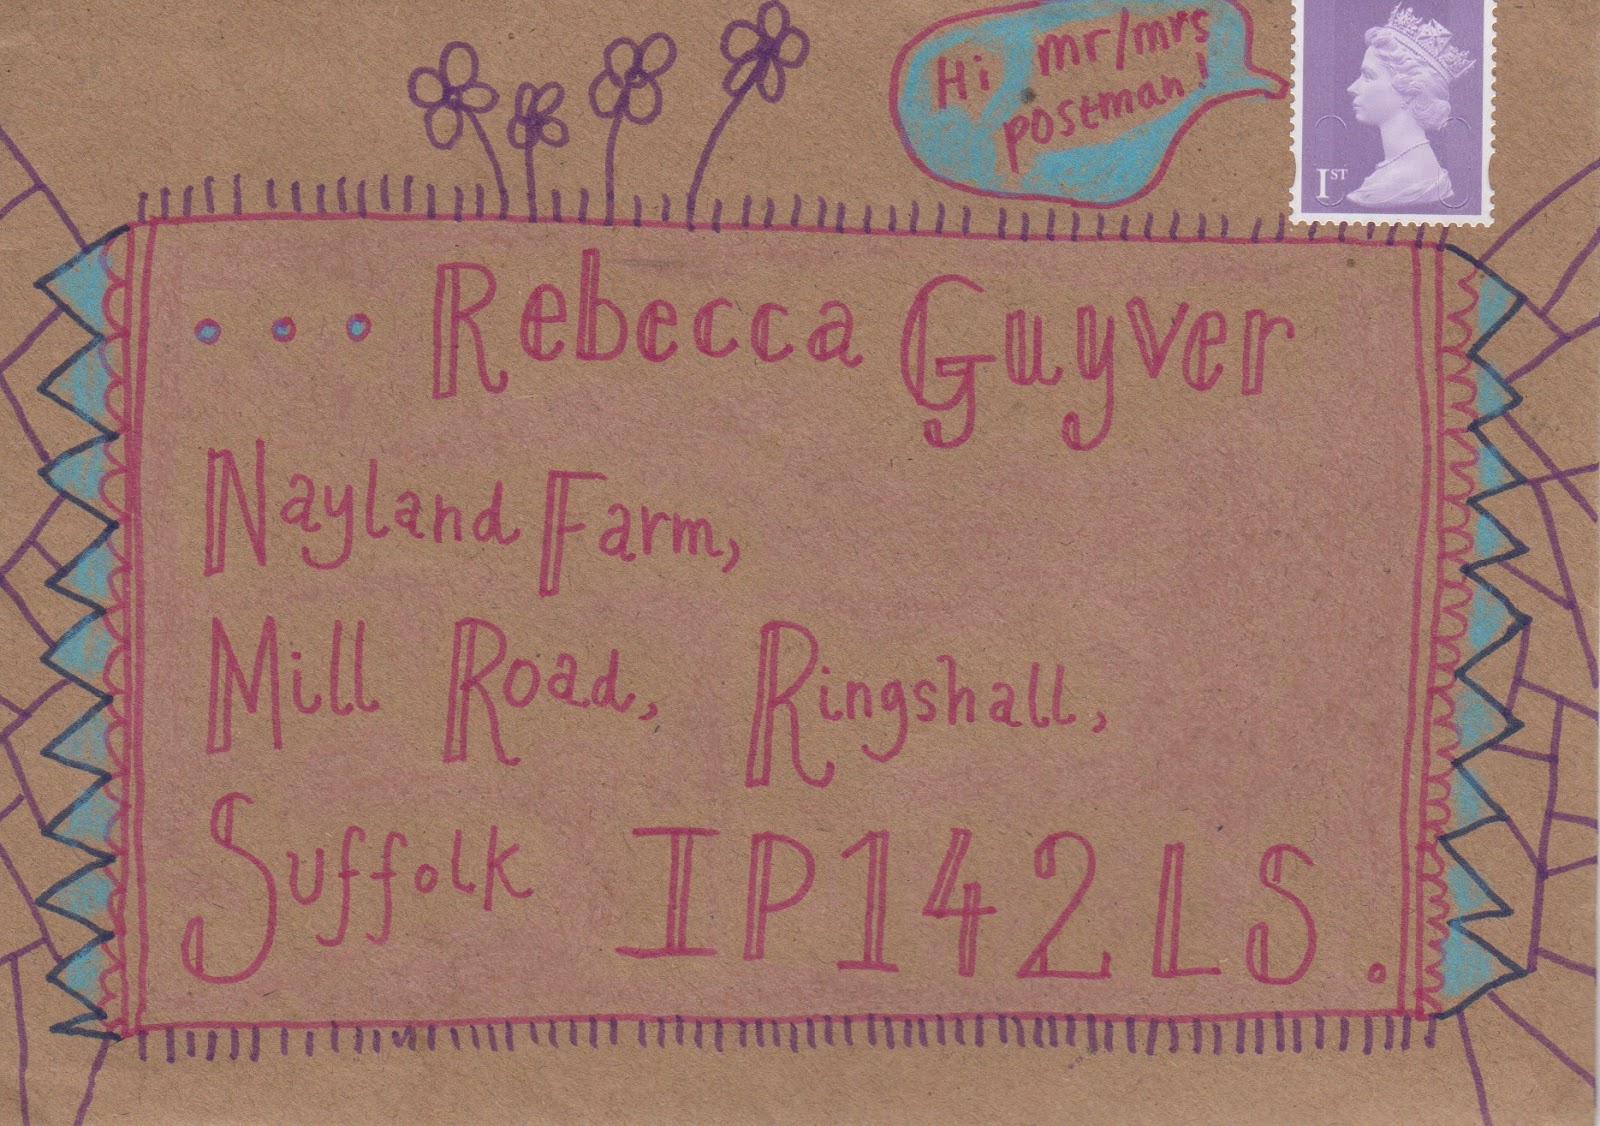 Hi mr/mrs
postman!
1ST
... Rebecca Guyver
Nayland Farm,
Mill Road, Ringshall,
Suffolk IP142LS.